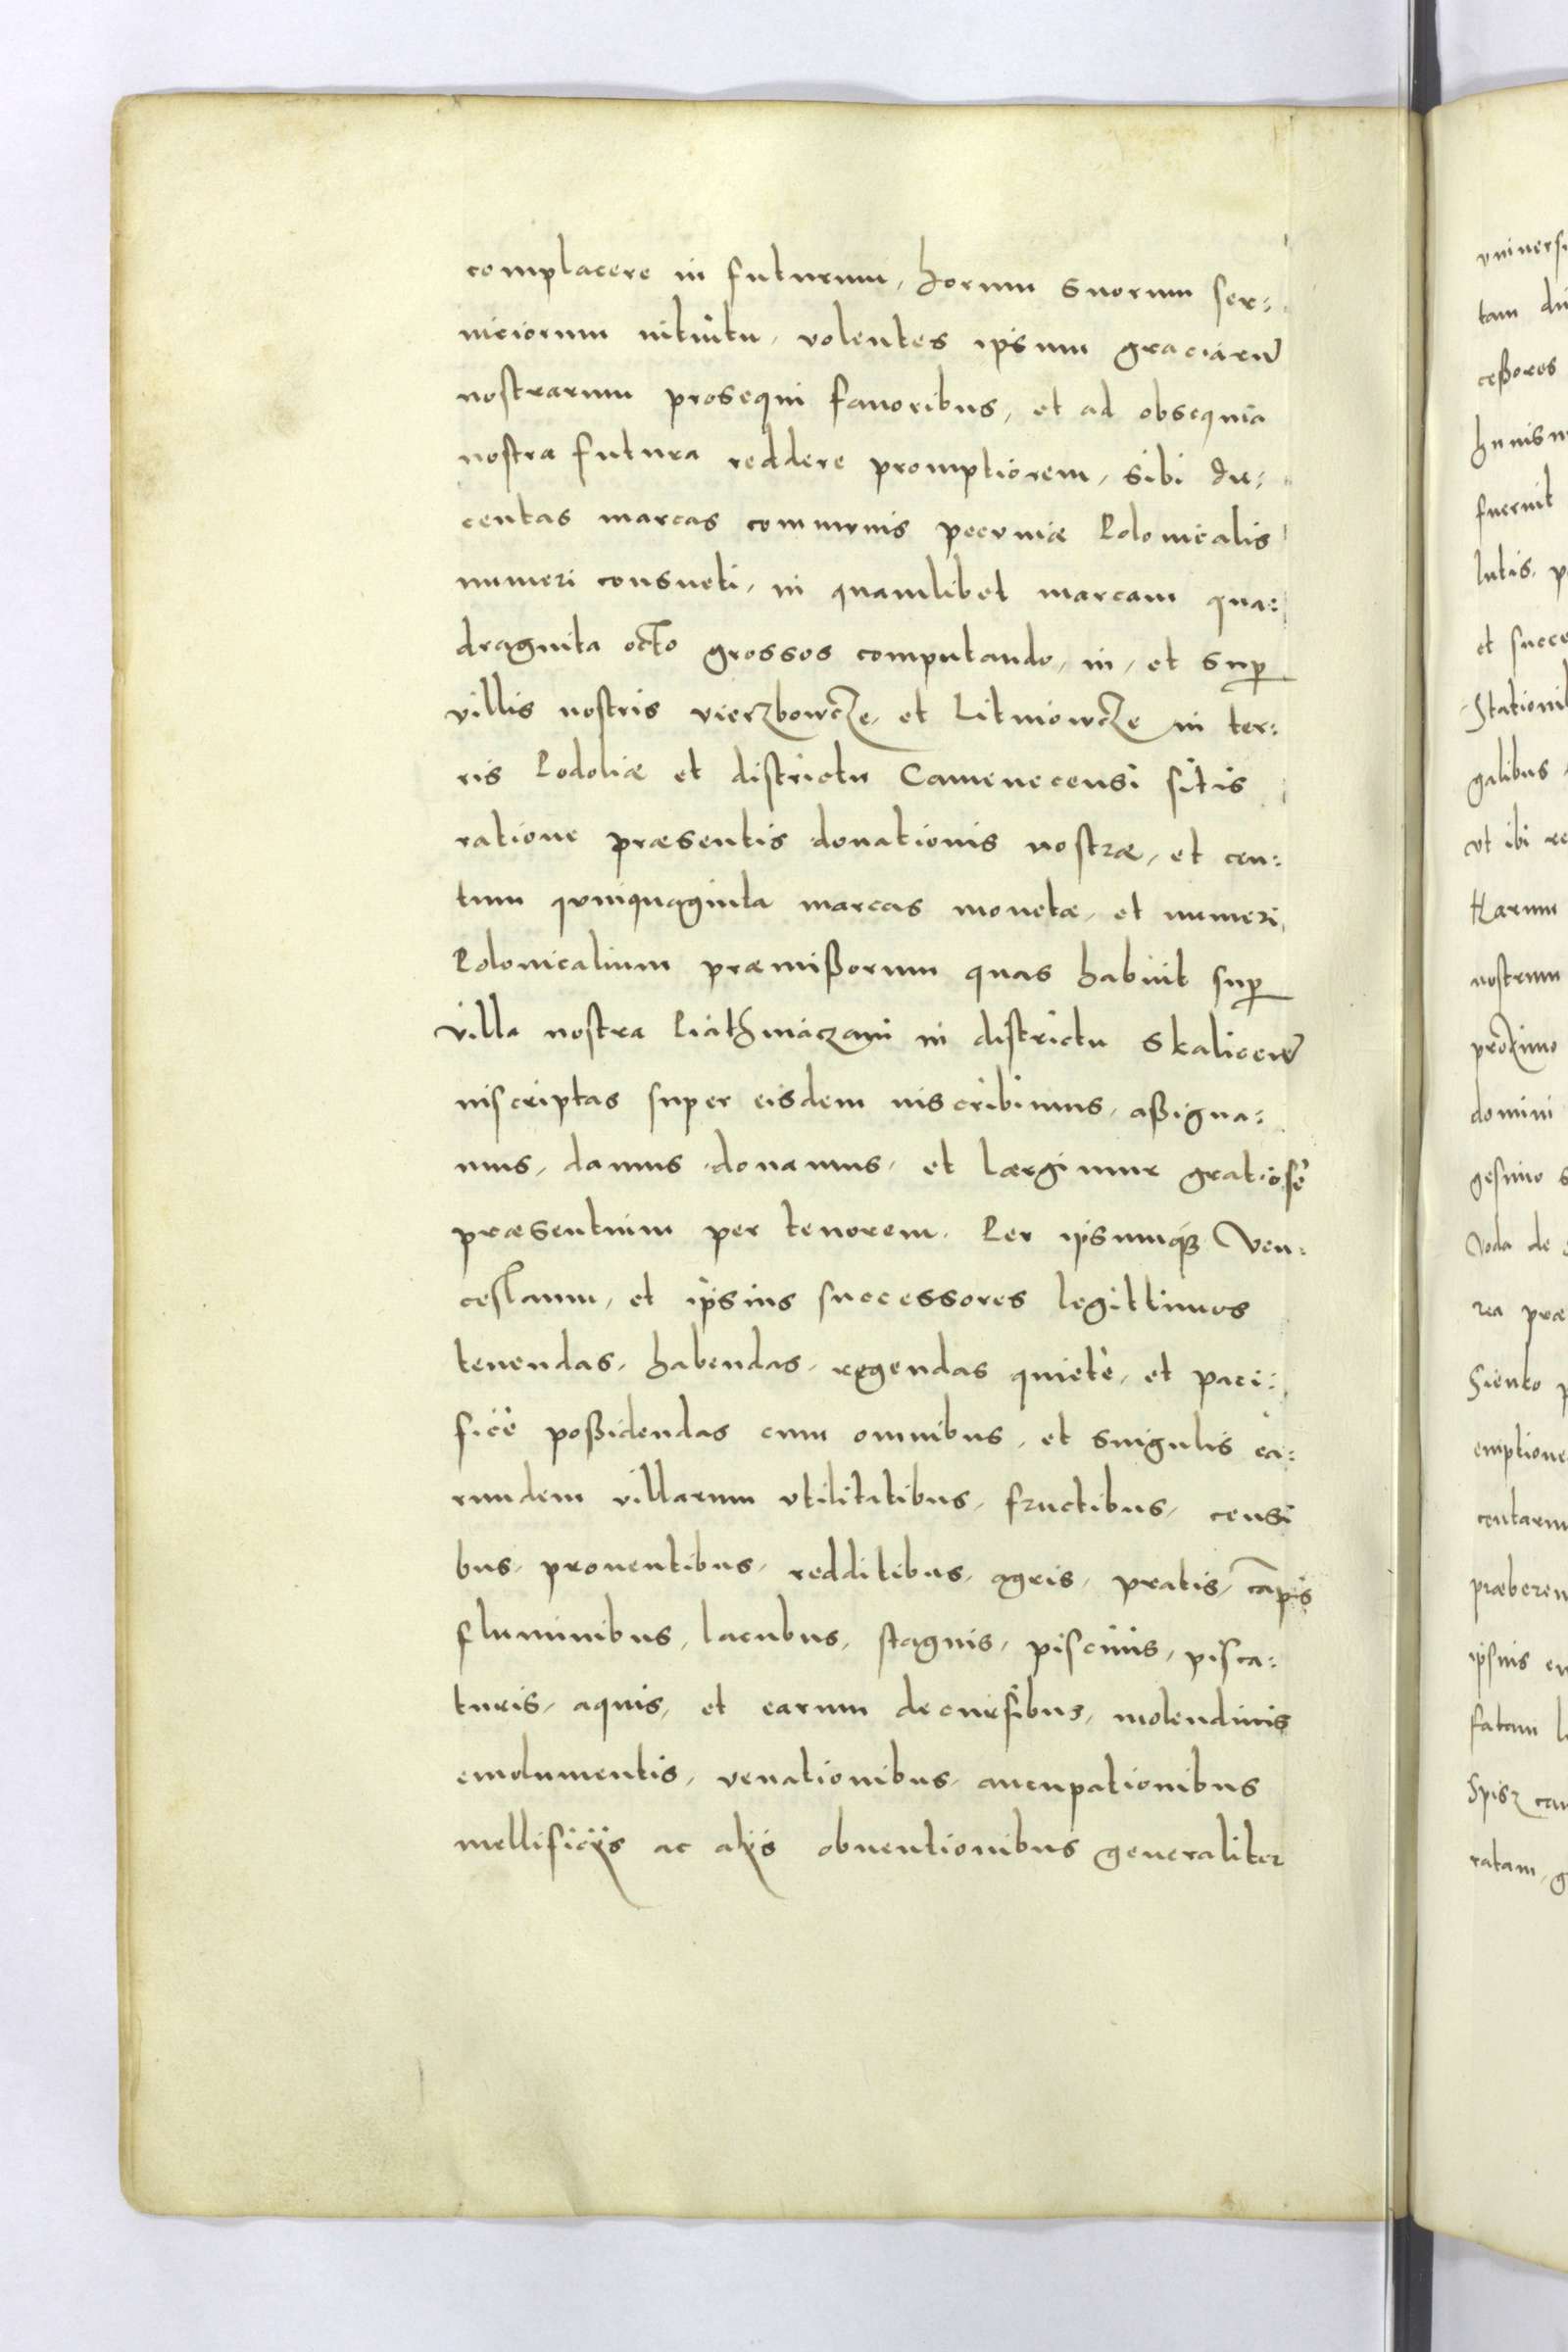 complacere in futurum, horum suorum ser:
uiciorum intuitu, volentes ipsum graciarũ
nostrarum prosequi fauoribus, et ad obsequia
nostra futura reddere promptiorem, sibi du:
centas marcas communis pecuniæ Polonicalis
numeri consueti, in quamlibet marcam qua:
draginta octo grossos computando, in, et sup
villis nostris vierzbowcze, et Litniowcze in ter:
ris Podoliæ et districtu Camenecensi sitis
ratione præsentis donationis nostræ, et cen:
tum quinquaginta marcas monetæ, et numeri
Polonicalium præmißorum quas habuit sup
villa nostra Piathniczani in districtu Skalicen̄
inscriptas super eisdem inscribimus, aßigna:
mus, damus donamus, et largimur gratiosè
præsentium per tenorem. Per ipsumqꝫ Ven:
ceslaum, et ipsius successores legittimos
tenendas, habendas, regendas quietè, et paci:
ficè poßidendas cum omnibus, et singulis ea:
rundem villarum vtilitatibus, fructibus, censi
bus, prouentibus, redditibus, agris, pratis, cãpis
fluminibus, lacubus, stagnis, piscinis, pisca:
turis, aquis, et earum decursibus, molendinis
emolumentis, venationibus, aucupationibus
mellificijs ac alijs obuentionibus generaliter
vniuersi
tam
ceßores
huius
fuerint
lutis,
et succe
Stationi
galibus
vt ibi re
Harum
nostrum
proximo
domini
gesimo
Voda de
rea præ
Siento
emptione
centarum
præberen
ipsius
fatam
Spisz
ratam,